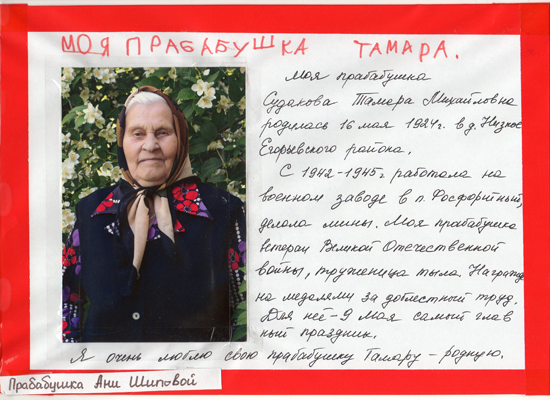 МОЯ ПРАБАБУШКА ТАМАРА.
Моя прабабушка
Судакова Тамара Михайловна
родилась 16 мая 1924г. в д. Низкое
Егорьевского района.
С 1942-1945г работала на
военном заводе в п. Фосфоритный,
делала мины. Моя прабабушка
ветеран Великой Отечественной
войны, труженица тыла. Награжде
на медалями за доблестный труд.
Для неё - 9 Мая самый глав
ный праздник.
Я очень люблю свою прабабушку Тамару - родную.
Прабабушка Ани Шиповой